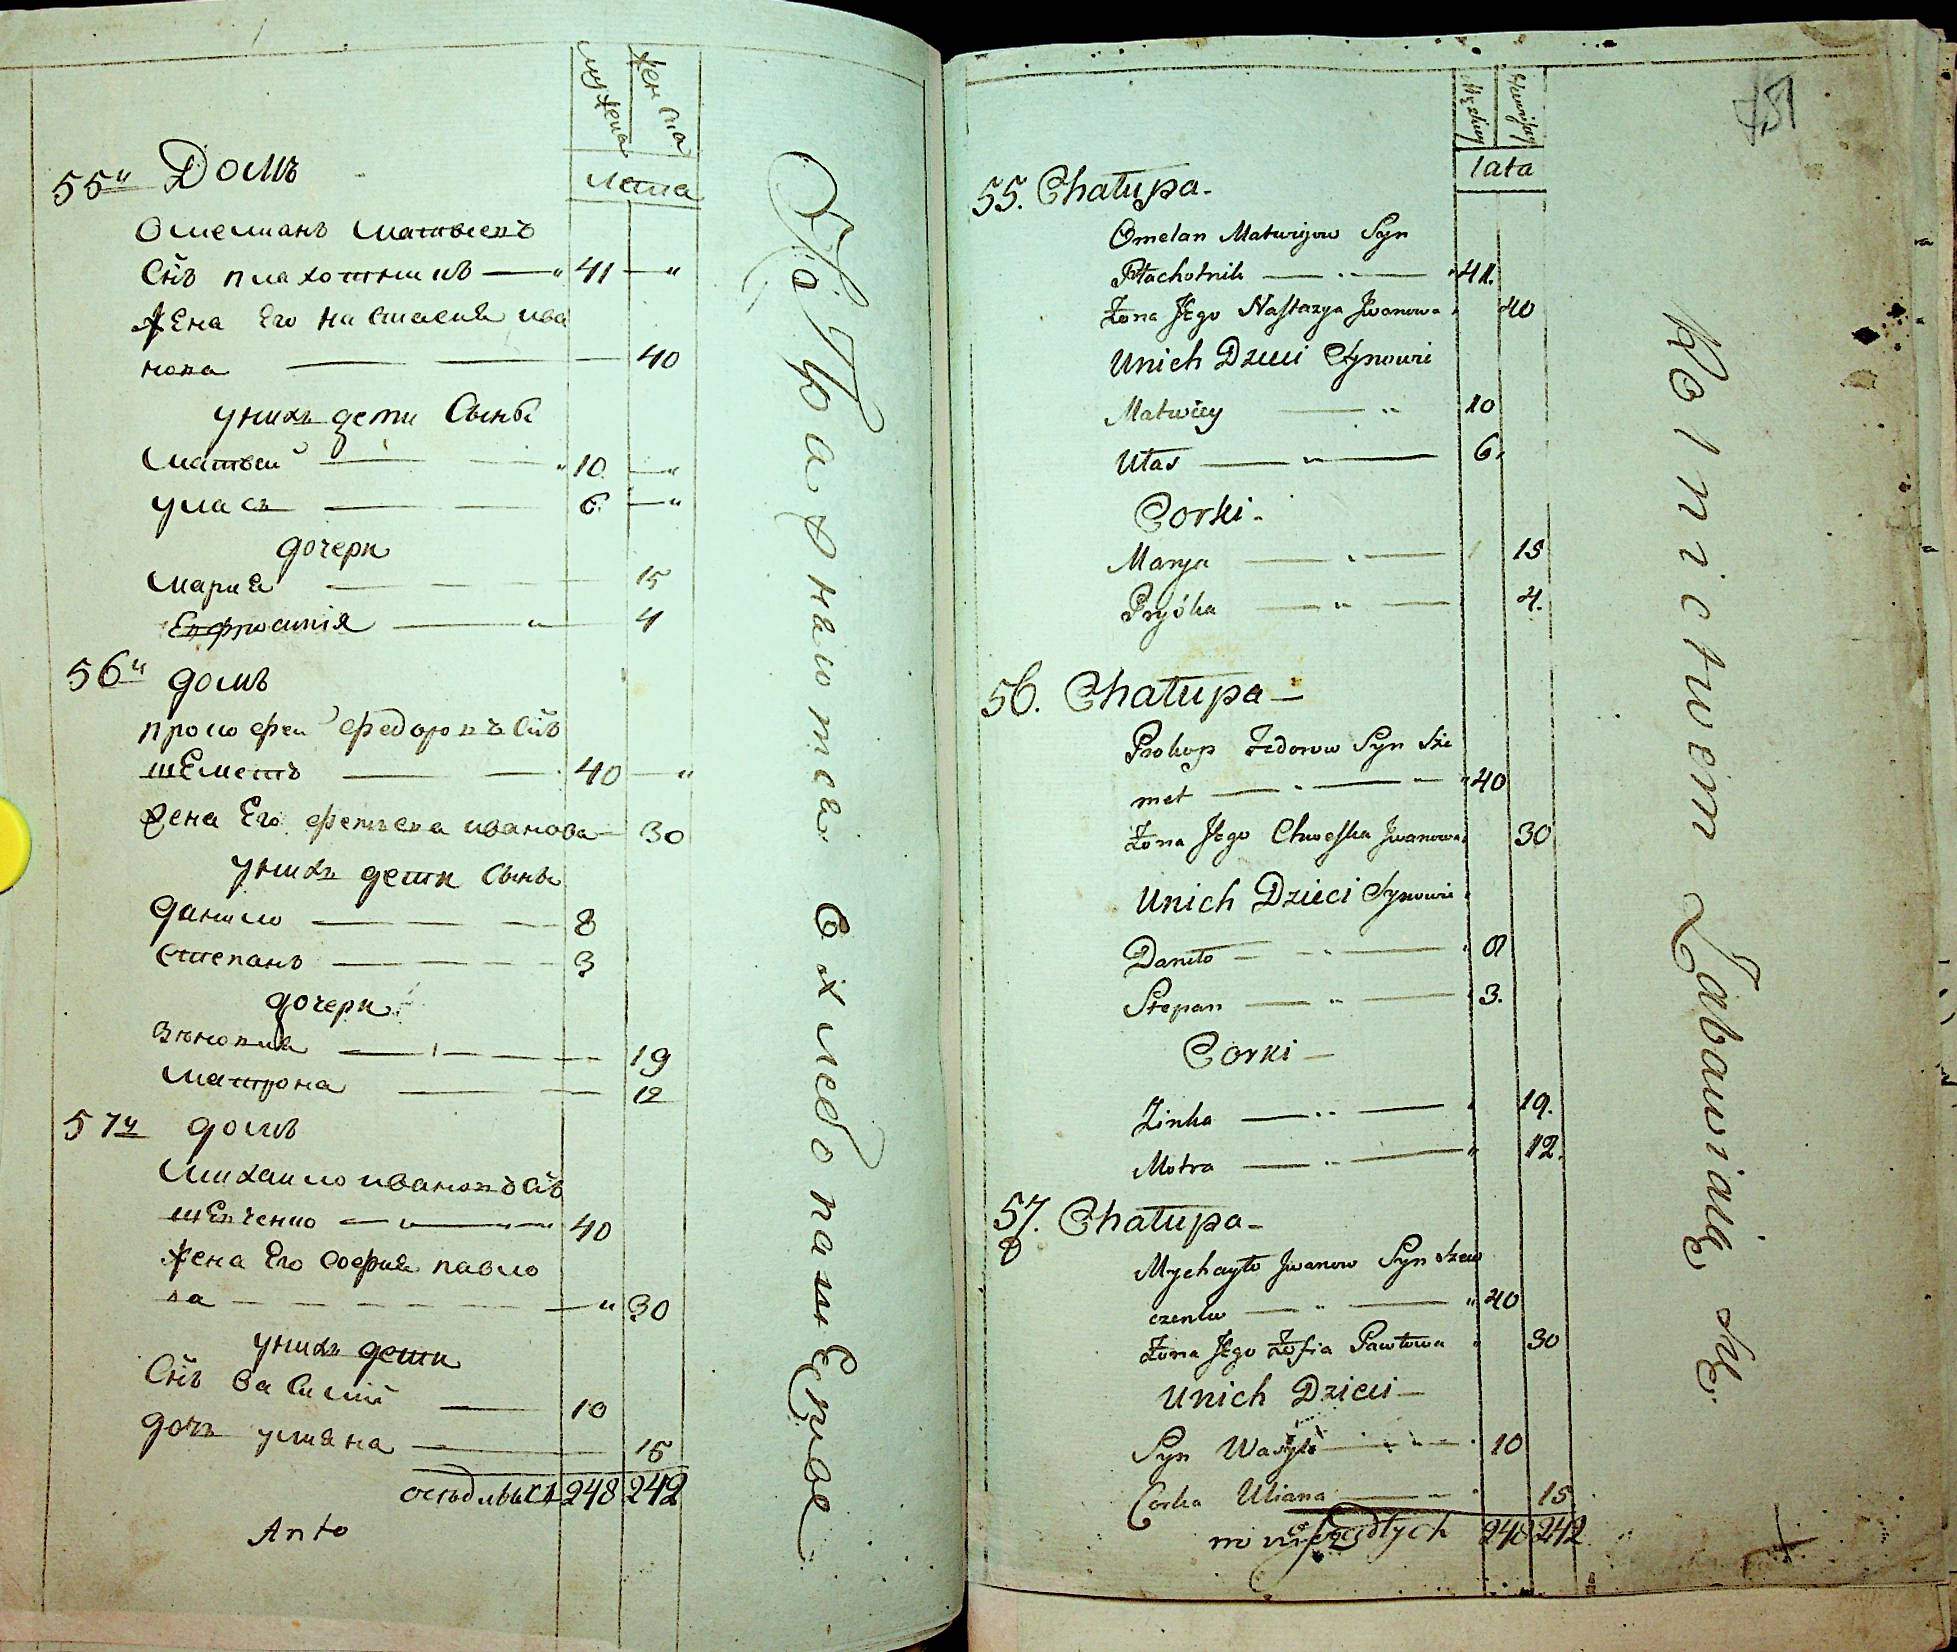 мужеска
женска
лета
55й Домъ
Омелианъ Матвеевъ
Снъ плахотникъ — 41
жена Его настасия ива
нова — 40
у нихъ дети Сыны
Матвей — 10
уласъ — 6
дочери
мария — 15
Евфросинія — 4
56й домъ
прокофей федоровъ Снъ
шЕметъ — 40
жена Его февська иванова — 30
у нихъ дети Сыны
данило — 8
Степанъ — 3
дочери
Матрона — 12
57й домъ
Михаило ивановъ Снъ
шЕвченко — 40
жена Его София павло
ва — 30
у нихъ дети
Снъ Василій — 10
дочъ улияна — 15
оседлыхъ 248 242
Anto
lata
55. Chałupa.
Omelan Matwijow Syn
Płachotnik — 41.
Żona Jego Nastazya Jwanowa 40
Unich Dzieci Synowie
Matwiey — 10
Ułas — 6.
Corki.
Marya — 15
Pryśka — 4.
56. Chałupa —
Prokop Fedorow Syn Sze
met — 40
Żona Jego Chweska Jwanowa 30
Unich Dzieci Synowie
Daniło — 8
Stepan — 3.
Corki —
Zinka — 19.
Motra — 12.
57. Chałupa —
Mychayło Jwanow Syn Szew
czenko — 40
Żona Jego Zofia Pawłowa 30
Unich Dzieci —
Syn Wasyl — 10
Corka Uliana — 15
248 242
Rolnictwem Zabawiaią się.